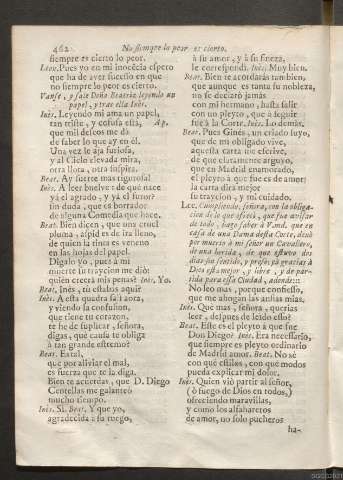 462 No siempre lo peor es cierto.
siempre es cierto lo peor.
Leon. Pues yo en mi inocēcia espero
que ha de aver sucesso en que
no siempre lo peor es cierto.
Vanse, y sale Doña Beatriz leyendo un
papel, y trae ella Inès.
Inès. Leyendo mi ama un papel,
tan triste, y confusa està, Ap.
que mil deseos me dà
de saber lo que ay en èl.
Una vez le aja furiosa,
y al Cielo elevada mira,
otra llora, otra suspira.
Beat. Ay suerte mas rigurosa!
Inès. A leer buelve: de què nace
yà el agrado, y yà el furor?
sin duda, que es borrador
de alguna Comedia que hace.
Beat. Bien dicen, que una cruel
pluma, aspid es de ira lleno,
de quien la tinta es veneno
en las hojas del papel.
Digalo yo, pues à mi
muerte su traycion me diò:
quièn creerà mis penas? Inès. Yo.
Beat. Inès, tù estabas aqui?
Inès. A esta quadra salì aora,
y viendo la confusion,
que tiene tu corazon,
te he de suplicar, señora,
digas, què causa te obliga
à tan grande estremo?
Beat. Es tal,
que por aliviar el mal,
es fuerza que te la diga.
Bien te acuerdas, que D. Diego
Centellas me galanteò
mucho tiempo.
Inès. Sì. Beat. Y que yo,
agradecida à su ruego,
à su amor, y à su fineza,
le correspondì. Inès. Muy bien.
Beat. Bien te acordaràs tambien,
que aunque es tanta su nobleza,
no se declarò jamàs
con mi hermano, hasta salir
con un pleyto, que à seguir
fuè à la Corte. Inès. Lo demàs.
Beat. Pues Ginès, un criado suyo,
que de mi obligado vive,
aquesta carta me escrive,
de que claramente arguyo,
que en Madrid enamorado,
el pleyto à que fuè es de amor:
la carta dirà mejor
su traycion, y mi cuidado.
Lee. Cumpliendo, señora, con la obliga-
cion de lo que ofrecì, que fuè avisar
de todo, hago saber à V.md. que en
casa de una Dama desta Corte, diò
por muerto à mi señor un Cavallero,
de una herida, de que estuvo dos
dias sin sentido, y preso; yà gracias à
Dios està mejor, y libre, y de par-
tida para essa Ciudad, adonde:::
No leo mas, porque confiesso,
que me ahogan las ansias mias.
Inès. Què mas, señora, querias
leer, despues de leìdo esso?
Beat. Este es el pleyto à que fuè
Don Diego? Inès. Era necessario,
que siempre es pleyto ordinario
de Madrid amor. Beat. No sè
con què estilos, con què modos
pueda explicar mi dolor.
Inès. Quien viò partir al señor,
(ò fuego de Dios en todos,)
ofreciendo maravillas,
y como los alfahareros
de amor, no solo pucheros
ha-